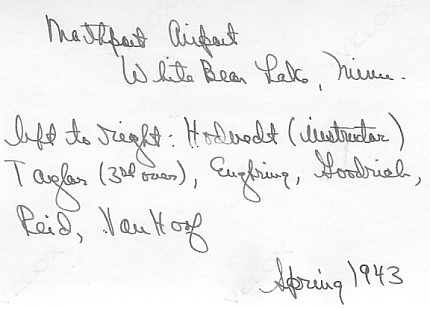 Mathport Airport
White Bear Lake, Minn.
left to right: Hodvedt (instructor)
Taylor (3rd over), Engbring, Goodrich,
Reid, Van Hoof
Spring 1943